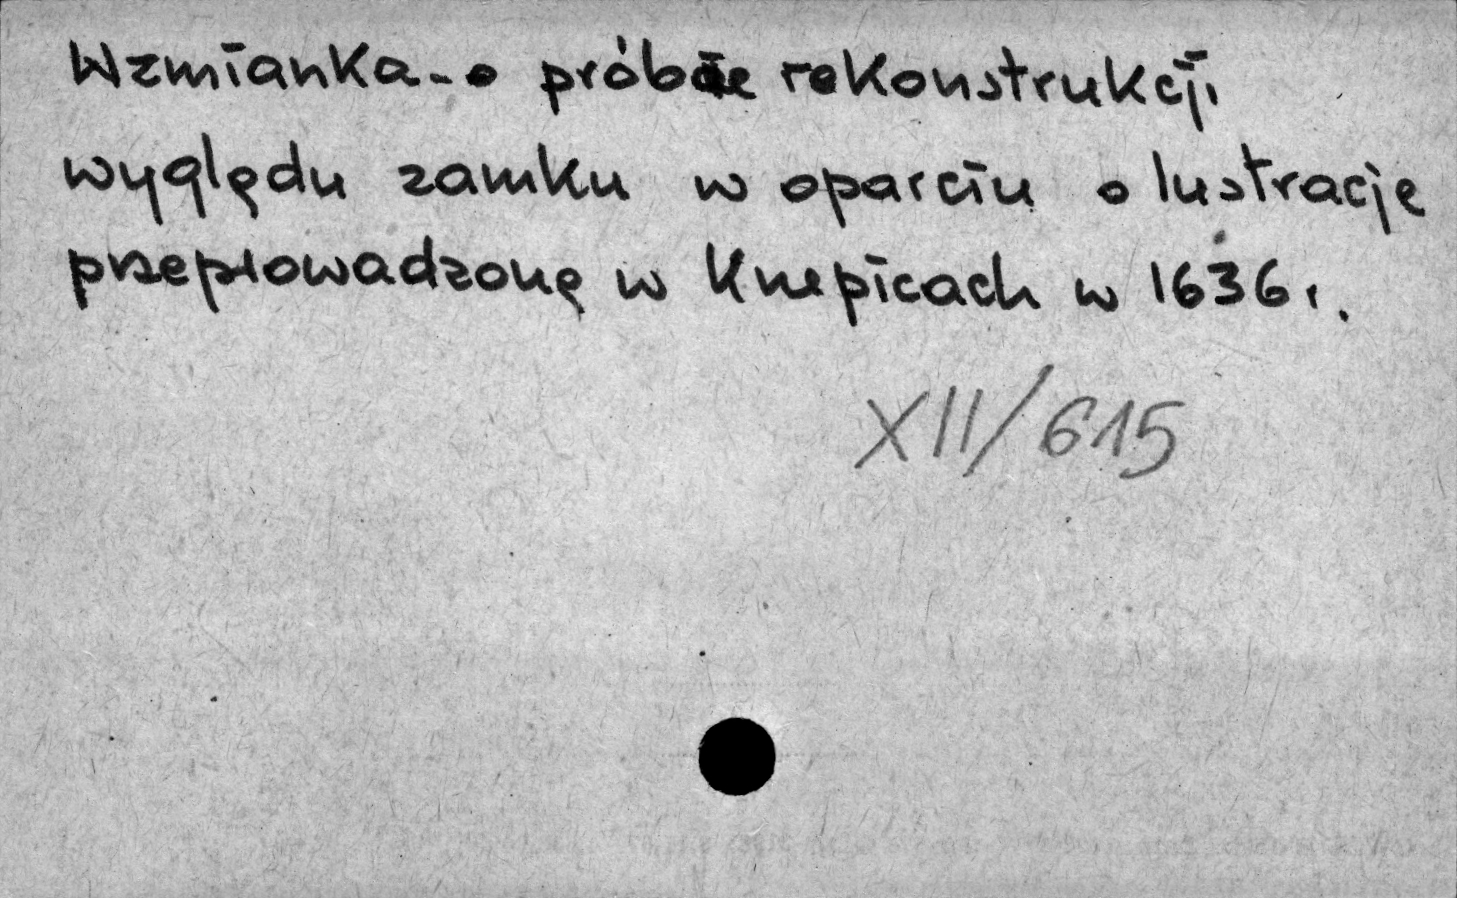 Wzmianka - o próbie rekonstrukcji
wyglądu zamku w oparciu o lustracje
przeprowadzoną w Krzepicach w 1636 r.
XII/615